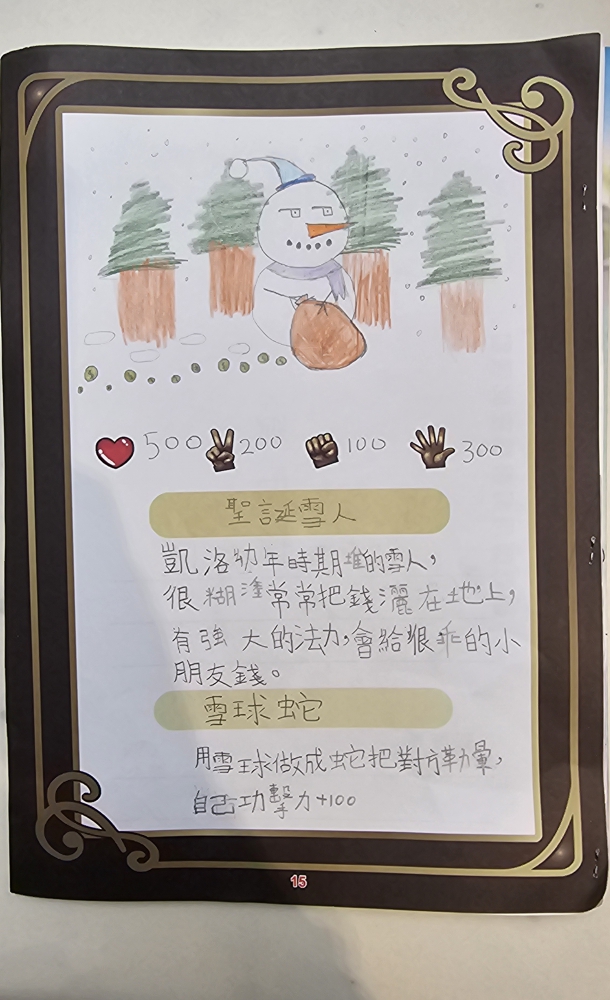 500 200 100 300
聖誕雪人
凱洛幼年時期堆的雪人,
很糊塗常常把錢灑在地上,
有強大的法力,會給很乖的小
朋友錢。
雪球蛇
用雪球做成蛇把對方勒暈,
自己功擊力+100
15